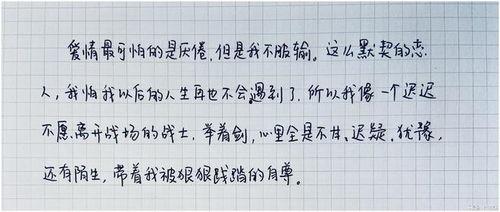 爱情最可怕的是厌倦,但是我不服输。这么默契的恋
人,我怕我以后的人生再也不会遇到了,所以我像一个迟迟
不愿离开战场的战士,举着剑,心里全是不甘、迟疑、犹豫,
还有陌生,带着我被狠狠践踏的自尊。